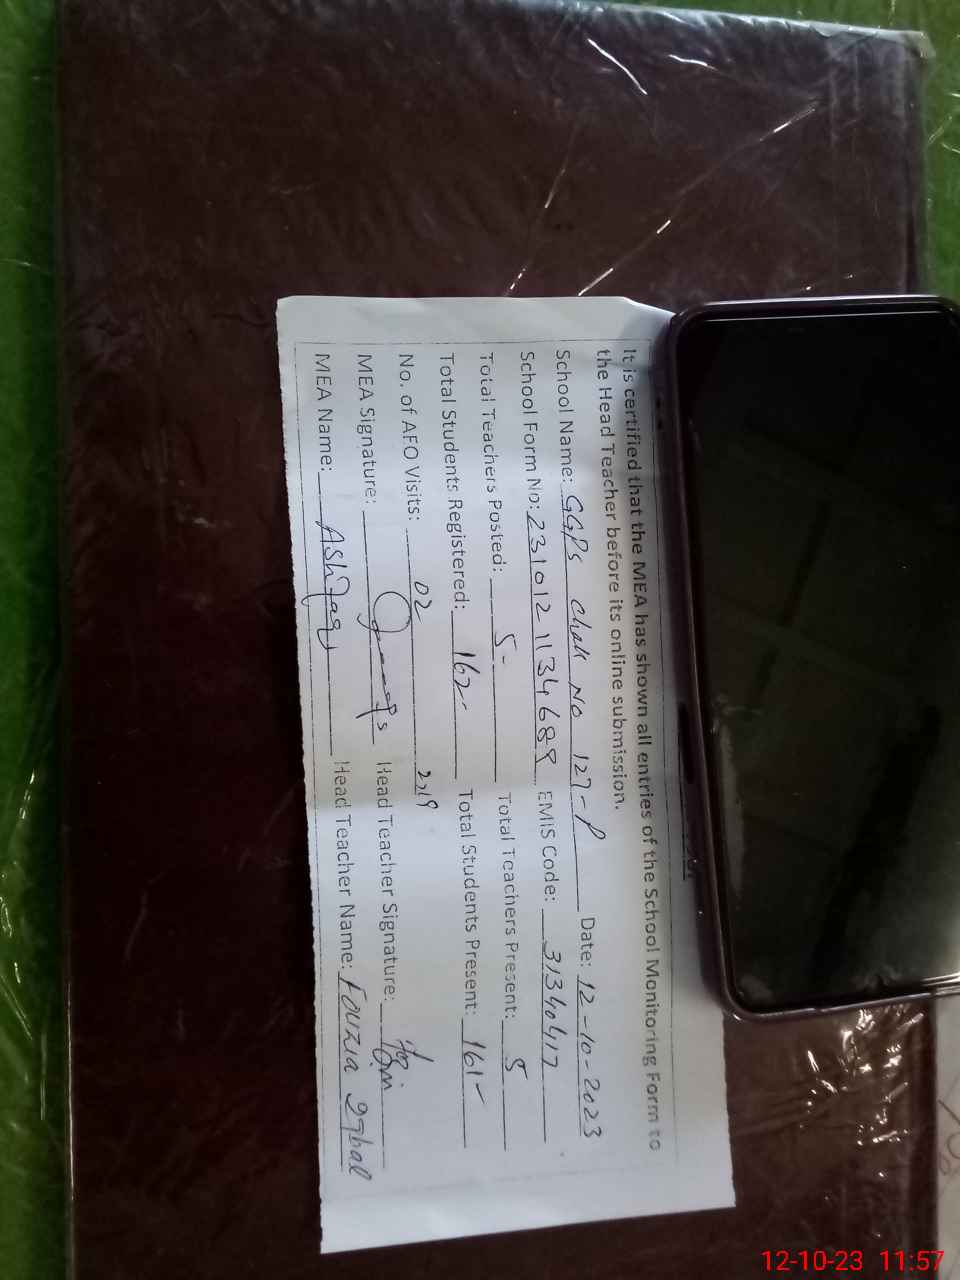 It is certified that the MEA has shown all entries of the School Monitoring Form to
the Head Teacher before its online submission.
School Name: GGPS Chak No 127-P Date: 12-10-2023
School Form No: 2310121134689 EMIS Code: 31340417
Total Teachers Posted: 5 Total Teachers Present: 5
Total Students Registered: 162 Total Students Present: 161
No. of AEO Visits: 02 2219
MEA Signature: Head Teacher Signature:
MEA Name: Ashfaq Head Teacher Name: Fouzia Iqbal
12-10-23 11:57